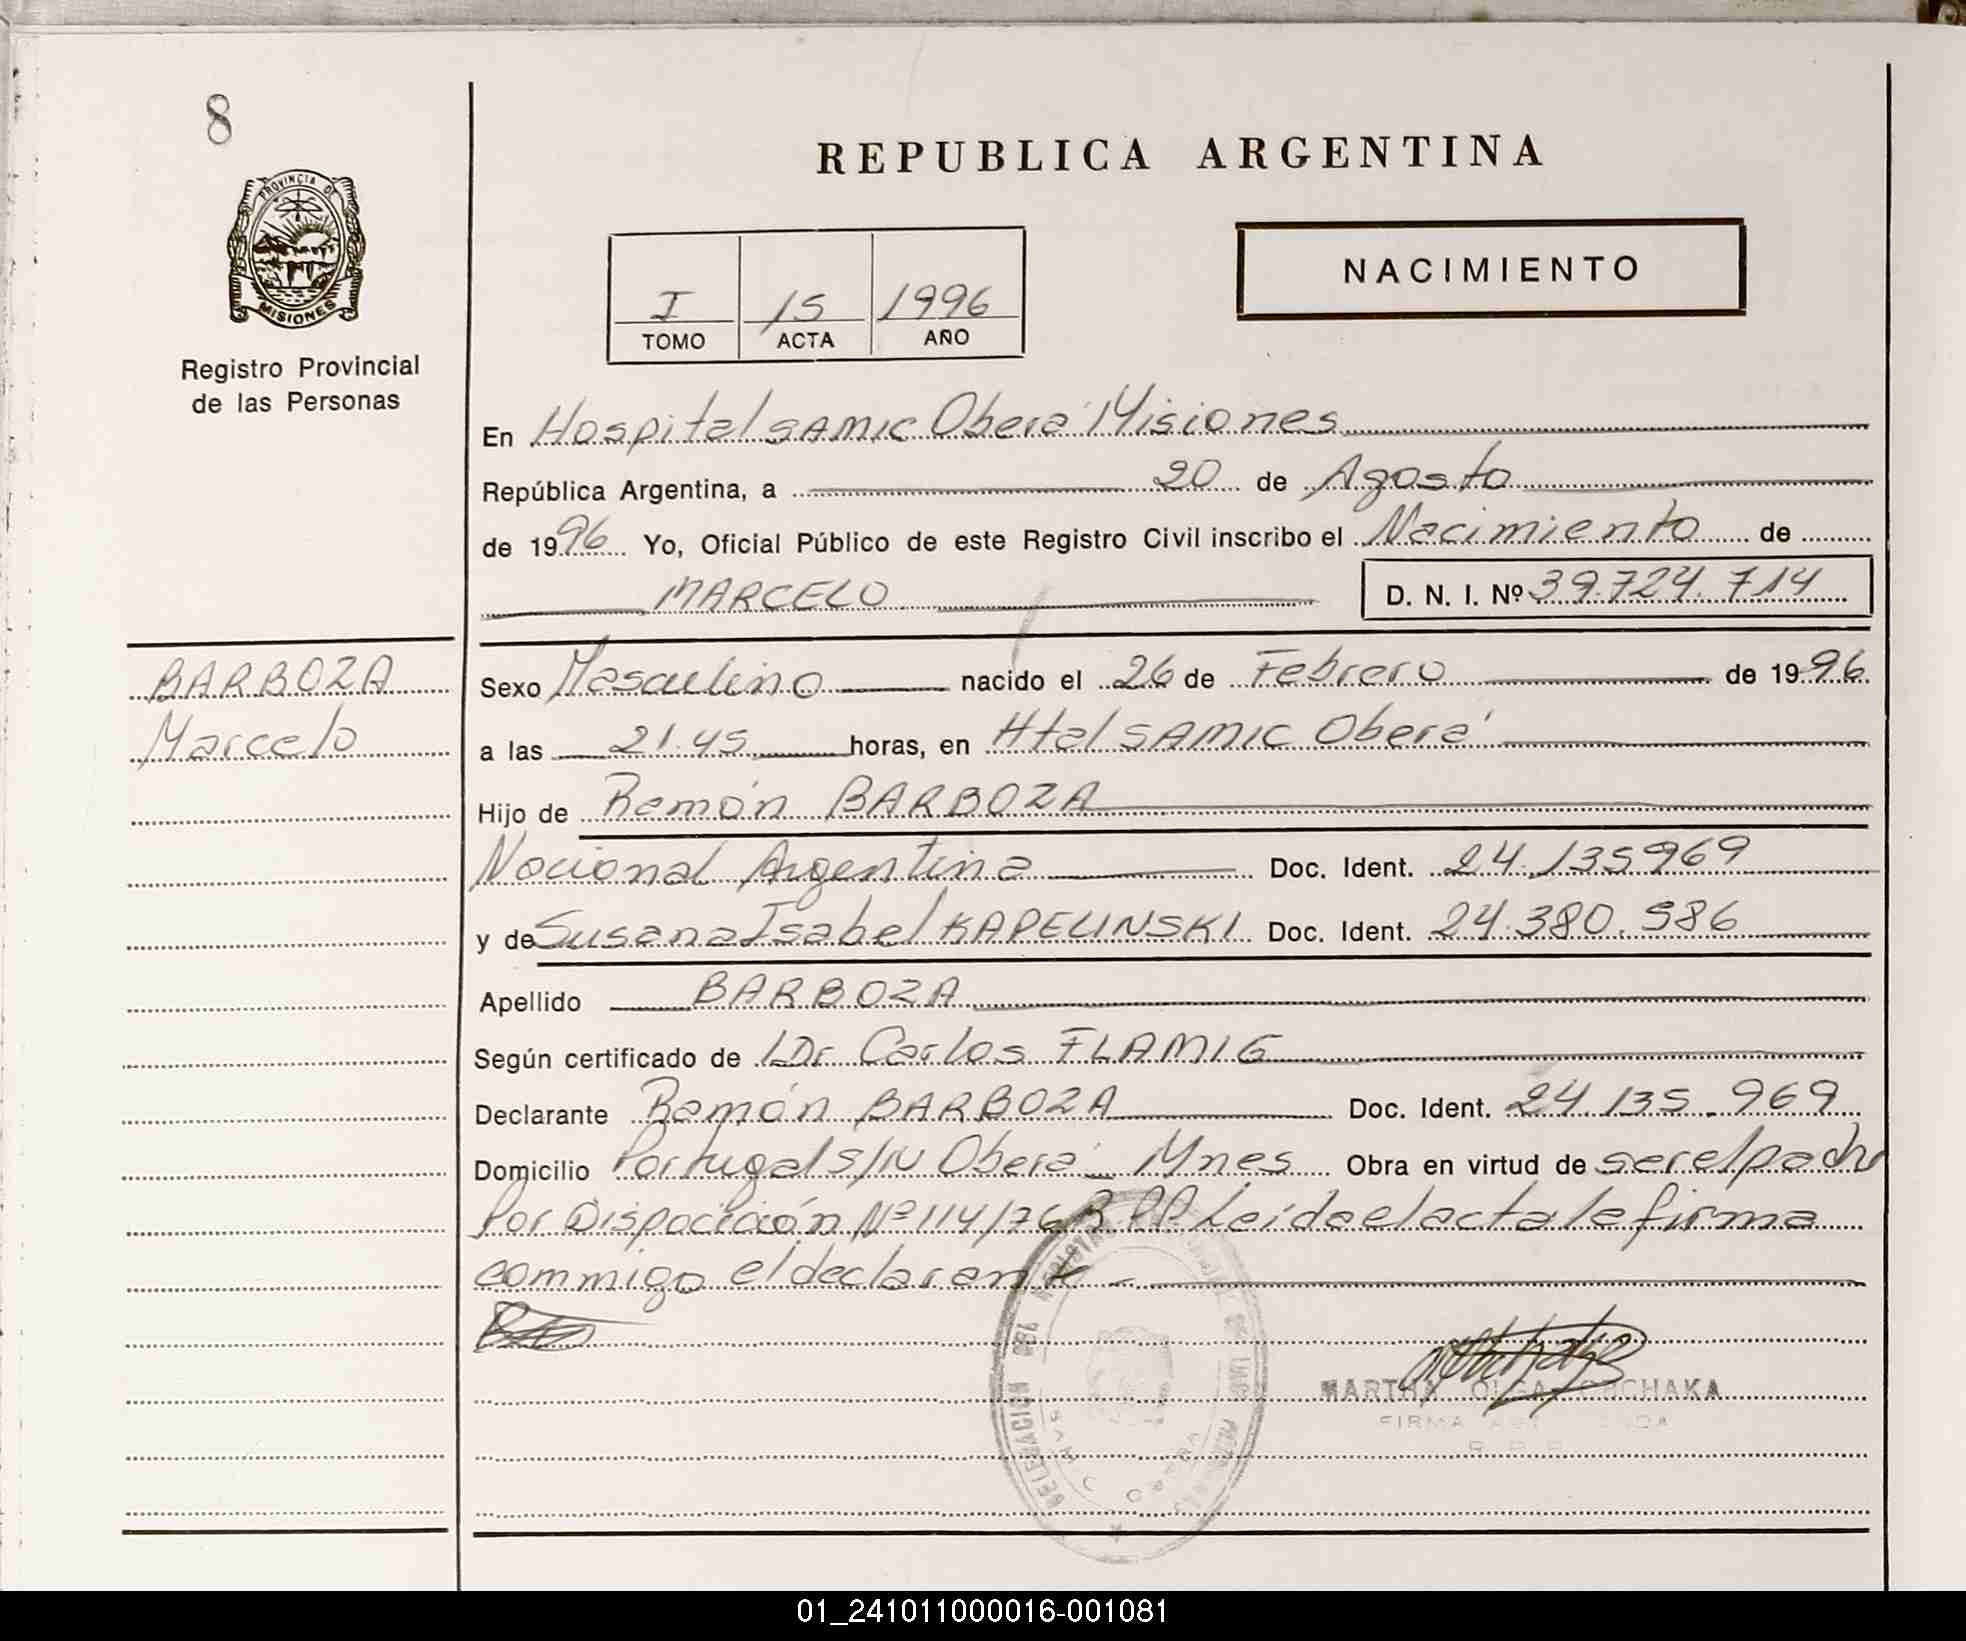 8
PROVINCIA DE
MISIONES
Registro Provincial
de las Personas
REPUBLICA ARGENTINA
I 15 1996
TOMO ACTA AÑO
NACIMIENTO
En Hospital SAMIC Oberá Misiones
República Argentina, a 20 de Agosto
de 1996 Yo, Oficial Público de este Registro Civil inscribo el Nacimiento de
MARCELO D. N. I. Nº 39.724.714
BARBOZA
Marcelo
Sexo Masculino nacido el 26 de Febrero de 1996
a las 21.45 horas, en Htal SAMIC Oberá
Hijo de Ramón BARBOZA
Nacional Argentina Doc. Ident. 24.135969
y de Susana Isabel KAPELINSKI Doc. Ident. 24.380.586
Apellido BARBOZA
Según certificado de Dr Carlos FLAMIG
Declarante Ramón BARBOZA Doc. Ident. 24.135.969
Domicilio Portugal S/N Oberá - Mnes Obra en virtud de ser el padre
Por Disposición Nº 114/76 R.P.P. Leída el acta le firma
commigo el declarante -
DELEGACION DEL REGISTRO PROVINCIAL DE LAS PERSONAS
MARTHA OLGA
FIRMA
01_241011000016-001081